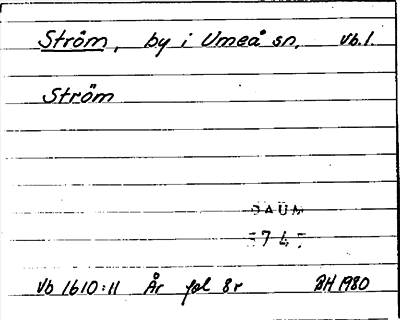 Ström, by i Umeå sn. Vb.l.
Ström
DAUM
Vb 1610:11 År fol 8r BH 1980